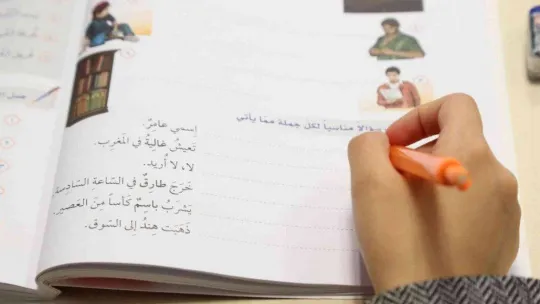 سؤالا مناسباً لكل جملة مما يأتي
إسمي عامِرٌ.
تَعيشُ غالِيةُ في المَغرِب.
لا، لا أُريد.
خَرَجَ طارِقٌ في السّاعة السّادِسة
يَشْرَبُ باسِمٌ كَأساً مِنَ العَصير.
ذَهَبَت هِندُ إلى السّوق.